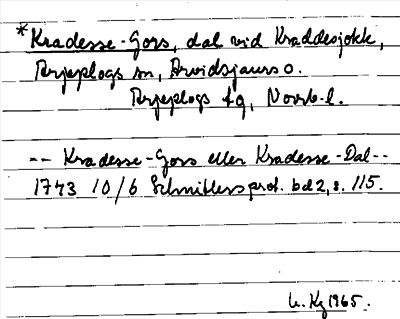 *Kradesse-Gors, dal vid Kraddesjokk,
Arjeplogs sn, Arvidsjaurs o.
Arjeplogs tg, Norrb. l.
-- Kradesse-Gors eller Kradesse-Dal--
1743 10/6 Schnitlers prot. bd 2, s. 115.
1965.